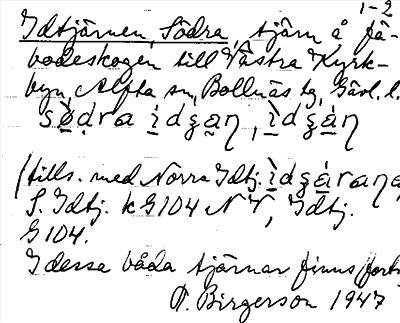 1-2
Idtjärnen, Södra, tjärn å fä-
bodeskogen till Västra Kyrk-
byn, Alfta sn, Bollnäs tg, Gävl. l.
(tills. med Norra Idtj.
S. Idtj. k G104 NV, Idtj.
G104.
I dessa båda tjärnar finns
O. Birgerson 1947